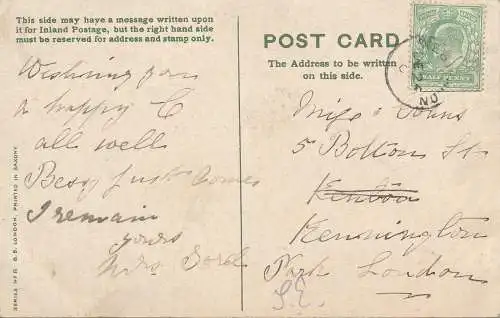 This side may have a message written upon
it for Inland Postage, but the right hand side
must be reserved for address and stamp only.
Wishing you
a happy C
all well
Best luck comes
I remain
yours
Mrs
SERIES Nº G. D. LONDON, PRINTED IN SAXONY.
POST CARD
The Address to be written
on this side.
HALF PENNY
Miss
5 Bolton St
Kennington
Park London
S.E.